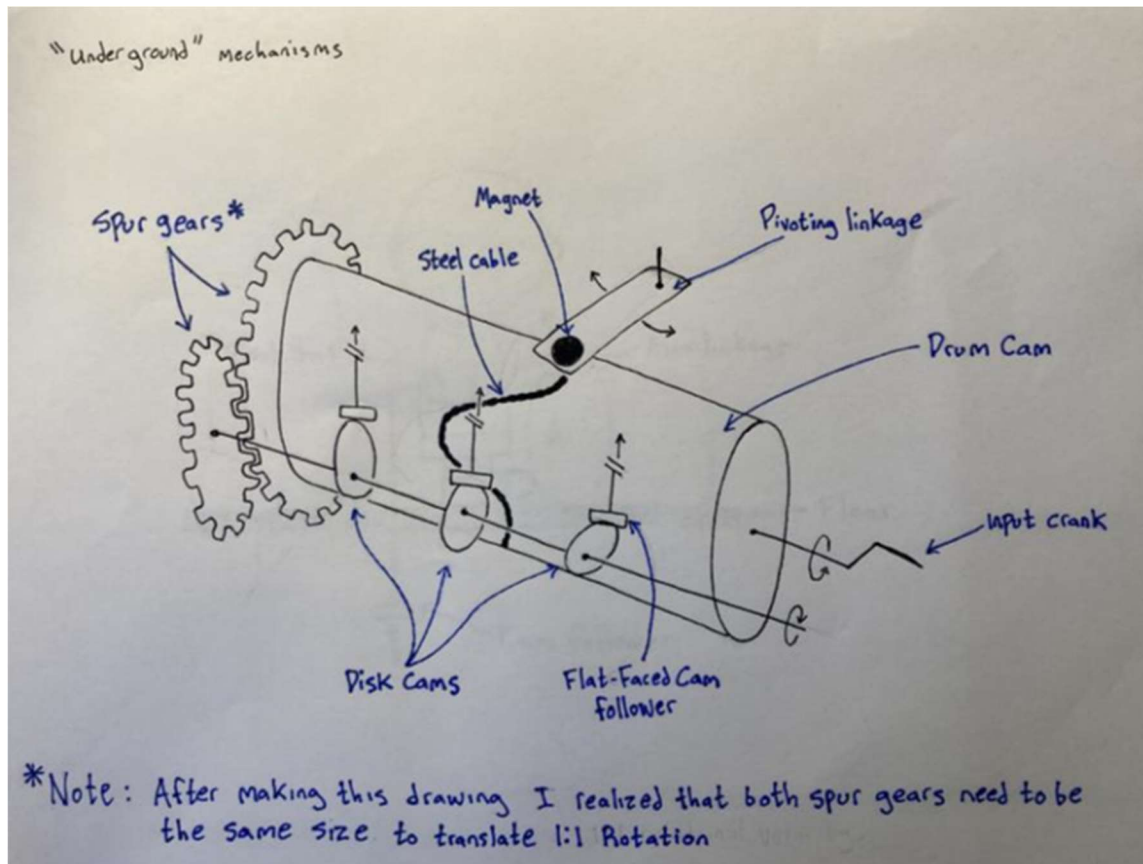 "Underground" mechanisms
Spur gears*
Magnet
Steel cable
Pivoting linkage
Drum Cam
input crank
Disk Cams
Flat-Faced Cam
follower
*Note: After making this drawing I realized that both spur gears need to be
the same size to translate 1:1 Rotation